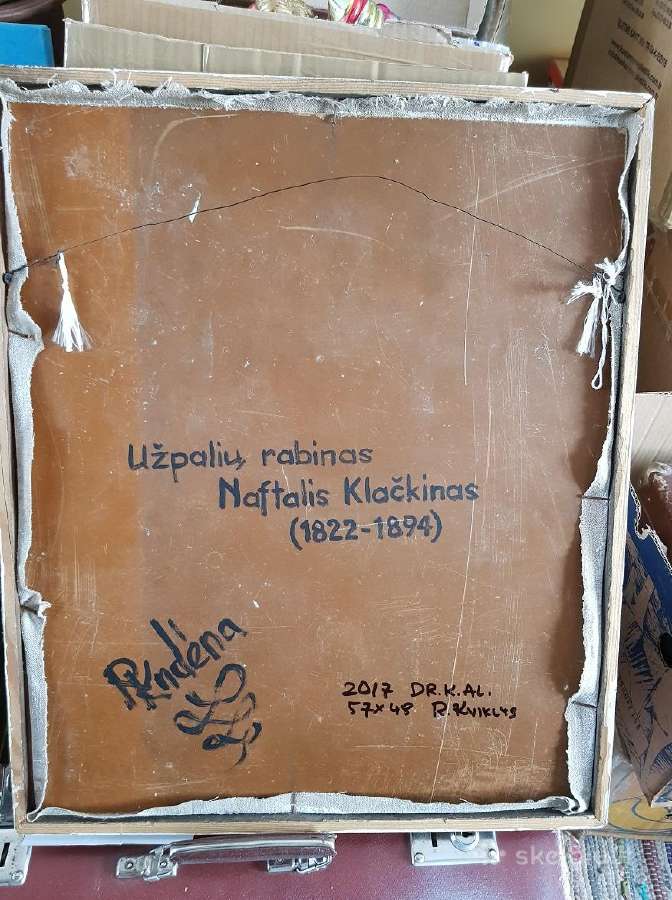 Užpalių rabinas
Naftalis Klačkinas
(1822-1894)
2017 DR.K.AL.
57x48 R.KVIKLYS